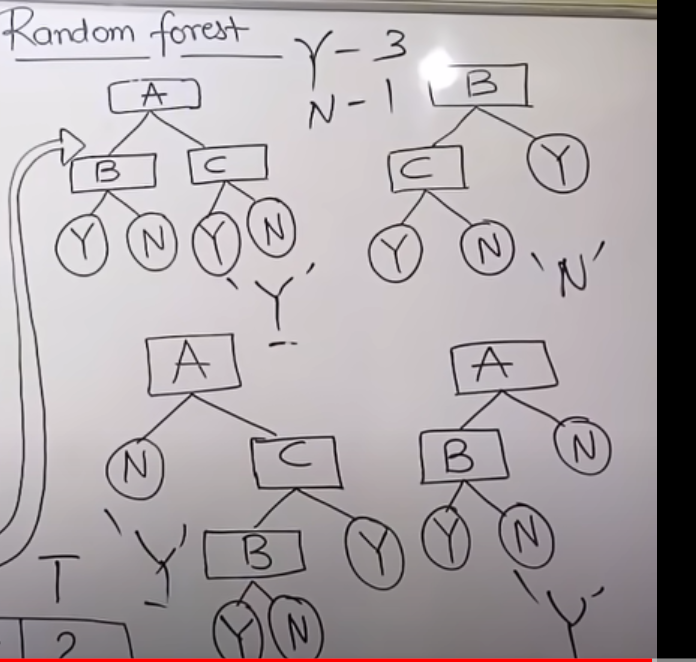 Random forest
Y - 3
N - 1
A
B
C
Y N Y N
'Y'
B
C
Y
Y N
'N'
A
N
C
B
Y
Y N
'Y'
A
B
N
Y N
'Y'
T
2